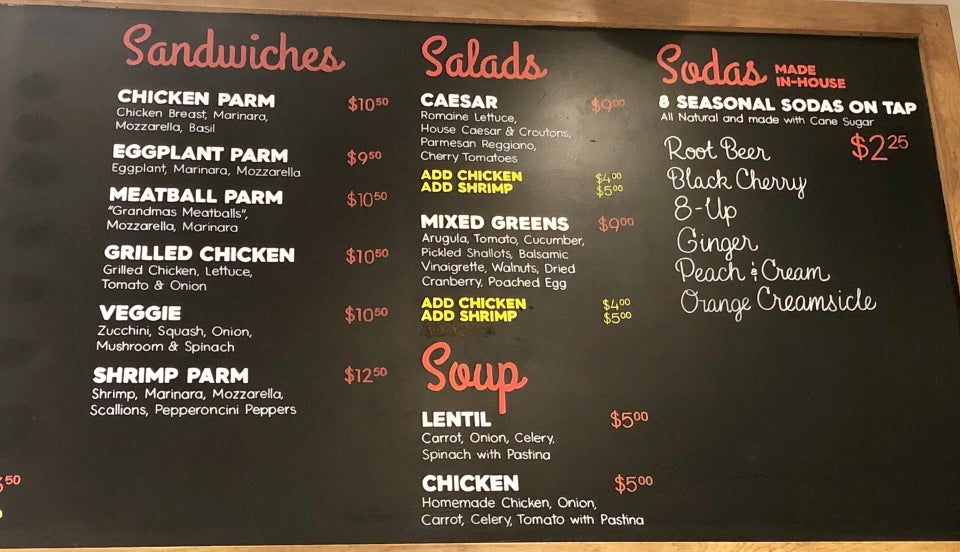 Sandwiches
CHICKEN PARM $10⁵⁰
Chicken Breast, Marinara,
Mozzarella, Basil
EGGPLANT PARM $9⁵⁰
Eggplant, Marinara, Mozzarella
MEATBALL PARM $10⁵⁰
"Grandmas Meatballs",
Mozzarella, Marinara
GRILLED CHICKEN $10⁵⁰
Grilled Chicken, Lettuce,
Tomato & Onion
VEGGIE $10⁵⁰
Zucchini, Squash, Onion,
Mushroom & Spinach
SHRIMP PARM $12⁵⁰
Shrimp, Marinara, Mozzarella,
Scallions, Pepperoncini Peppers
Salads
CAESAR $9⁰⁰
Romaine Lettuce,
House Caesar & Croutons,
Parmesan Reggiano,
Cherry Tomatoes
ADD CHICKEN $4⁰⁰
ADD SHRIMP $5⁰⁰
MIXED GREENS $9⁰⁰
Arugula, Tomato, Cucumber,
Pickled Shallots, Balsamic
Vinaigrette, Walnuts, Dried
Cranberry, Poached Egg
ADD CHICKEN $4⁰⁰
ADD SHRIMP $5⁰⁰
Soup
LENTIL $5⁰⁰
Carrot, Onion, Celery,
Spinach with Pastina
CHICKEN $5⁰⁰
Homemade Chicken, Onion,
Carrot, Celery, Tomato with Pastina
Sodas MADE
IN-HOUSE
8 SEASONAL SODAS ON TAP
All Natural and made with Cane Sugar
$2²⁵
Root Beer
Black Cherry
8-Up
Ginger
Peach & Cream
Orange Creamsicle